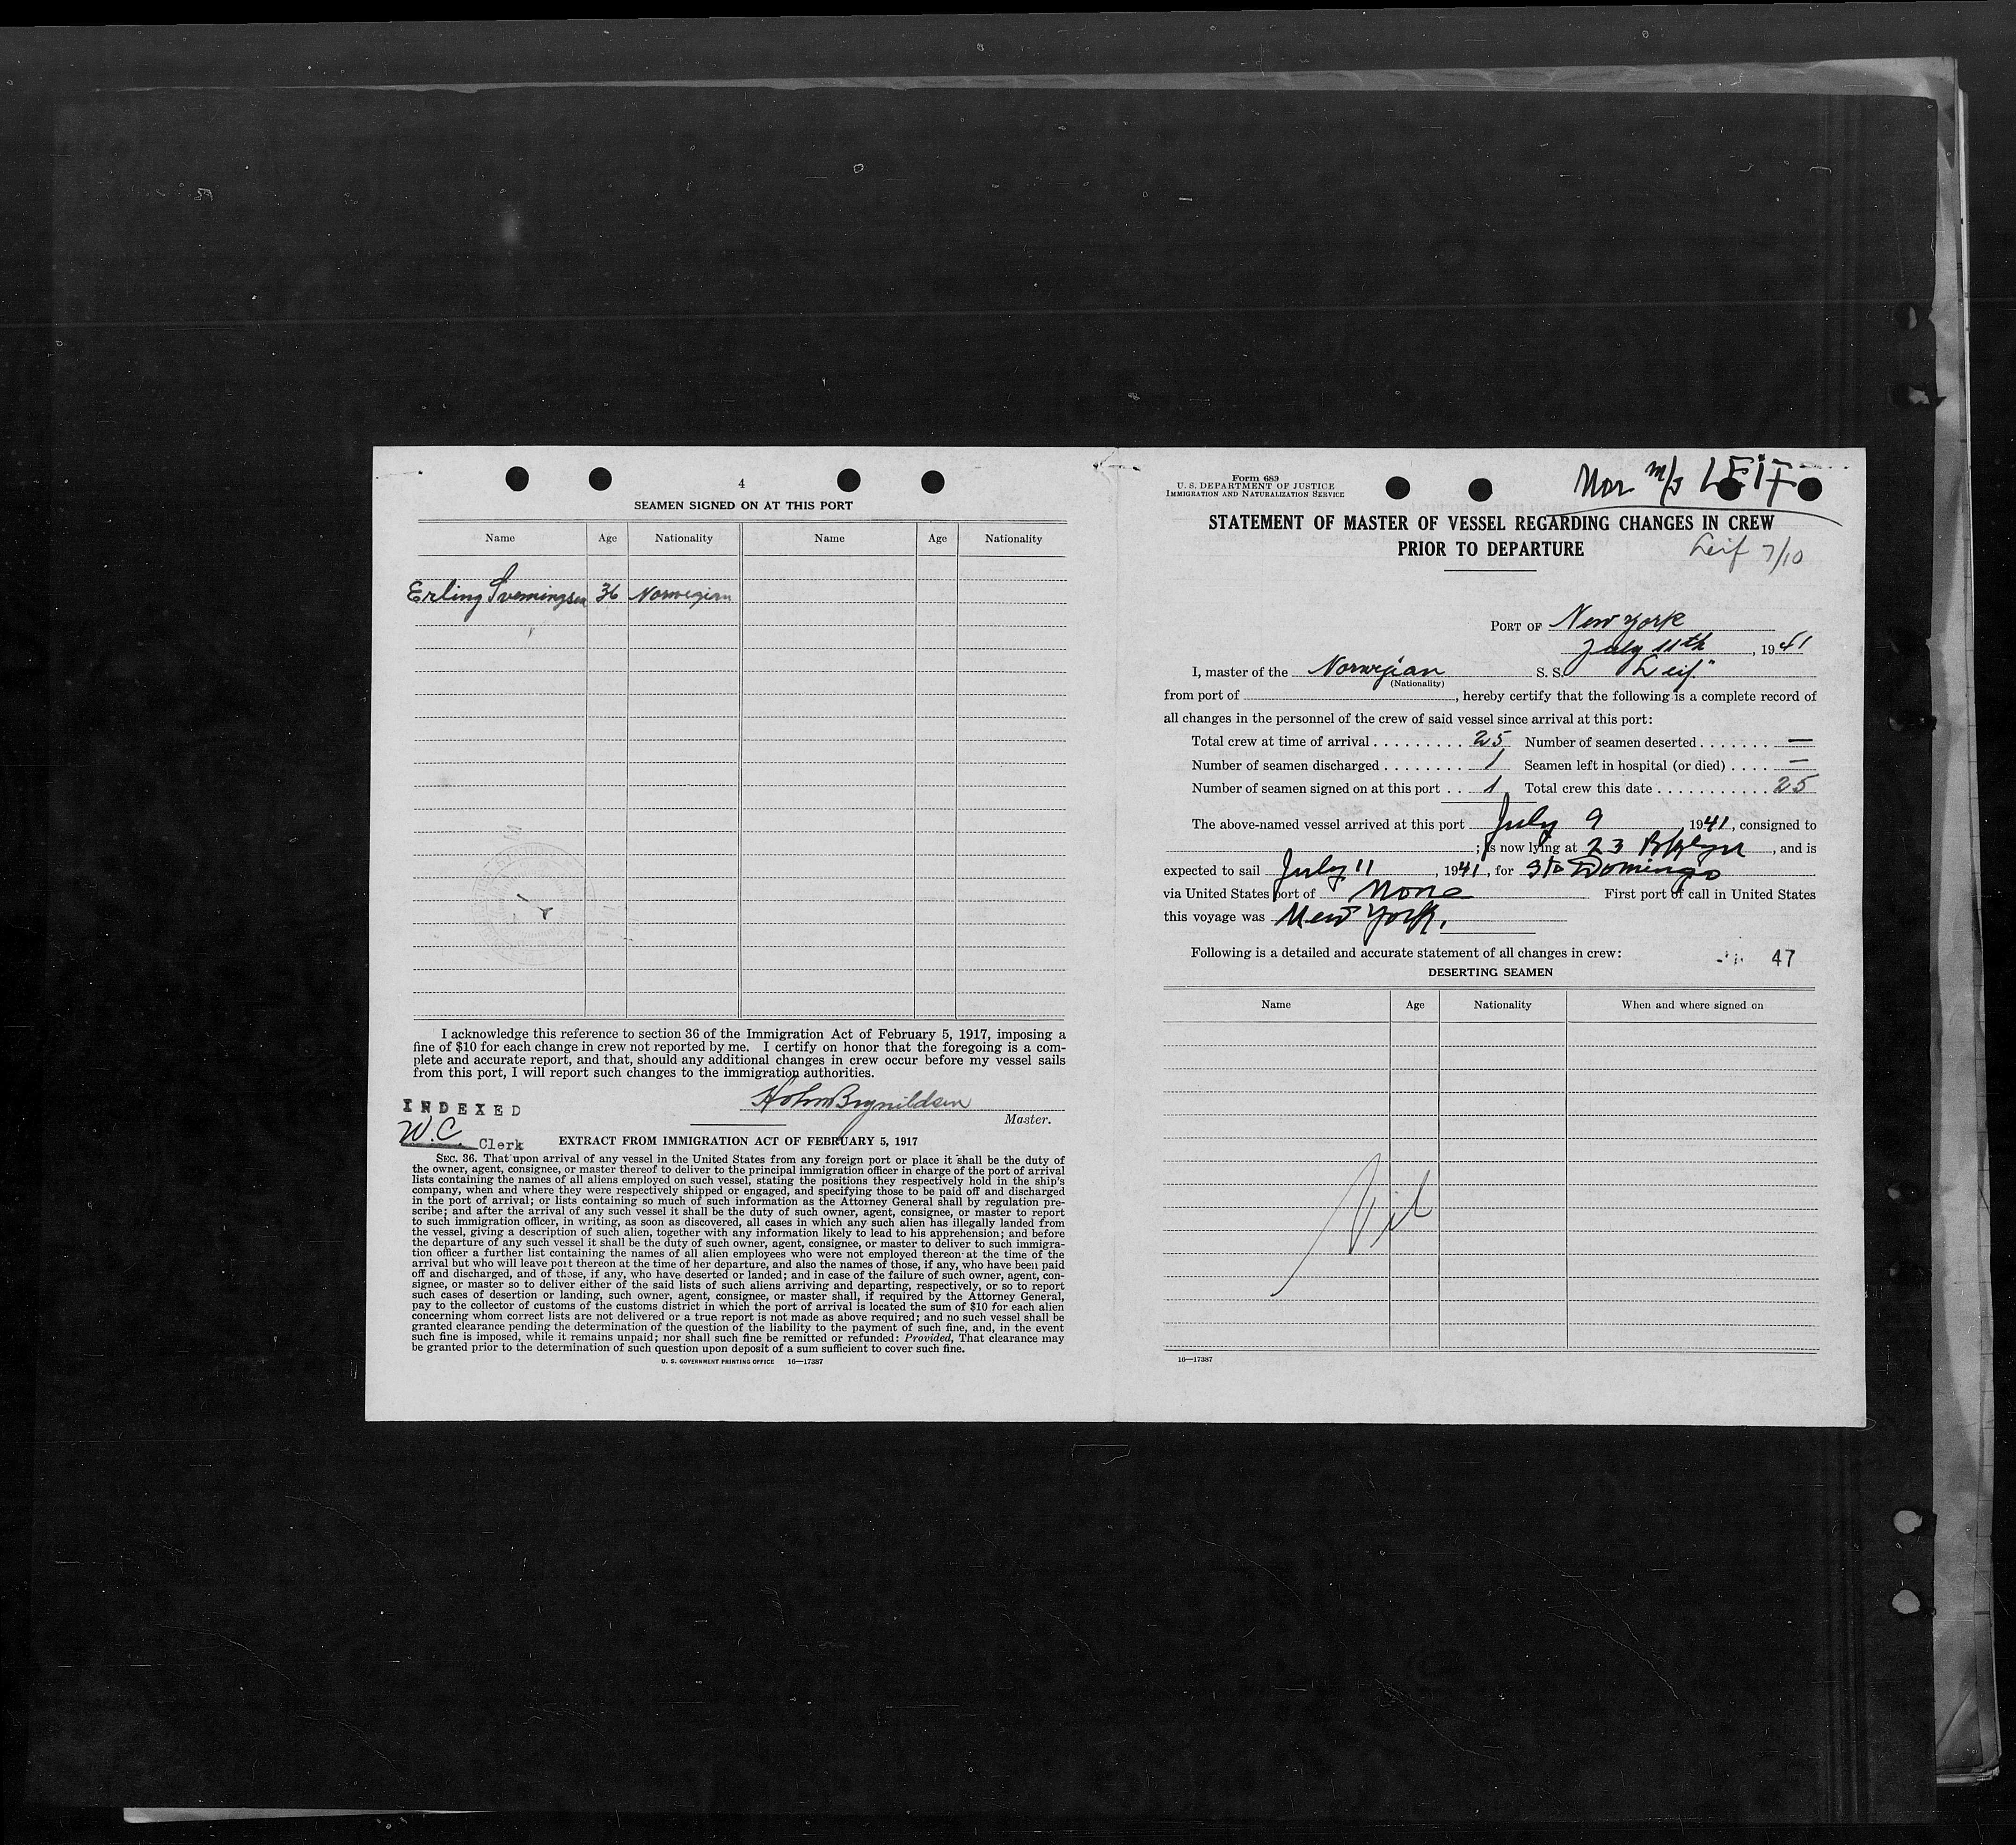 4
SEAMEN SIGNED ON AT THIS PORT
Name Age Nationality Name Age Nationality
Erling Svenningsen 36 Norwegian
I acknowledge this reference to section 36 of the Immigration Act of February 5, 1917, imposing a
fine of $10 for each change in crew not reported by me. I certify on honor that the foregoing is a com-
plete and accurate report, and that, should any additional changes in crew occur before my vessel sails
from this port, I will report such changes to the immigration authorities.
Master.
INDEXED
W.C. Clerk
EXTRACT FROM IMMIGRATION ACT OF FEBRUARY 5, 1917
SEC. 36. That upon arrival of any vessel in the United States from any foreign port or place it shall be the duty of
the owner, agent, consignee, or master thereof to deliver to the principal immigration officer in charge of the port of arrival
lists containing the names of all aliens employed on such vessel, stating the positions they respectively hold in the ship's
company, when and where they were respectively shipped or engaged, and specifying those to be paid off and discharged
in the port of arrival; or lists containing so much of such information as the Attorney General shall by regulation pre-
scribe; and after the arrival of any such vessel it shall be the duty of such owner, agent, consignee, or master to report
to such immigration officer, in writing, as soon as discovered, all cases in which any such alien has illegally landed from
the vessel, giving a description of such alien, together with any information likely to lead to his apprehension; and before
the departure of any such vessel it shall be the duty of such owner, agent, consignee, or master to deliver to such immigra-
tion officer a further list containing the names of all alien employees who were not employed thereon at the time of the
arrival but who will leave port thereon at the time of her departure, and also the names of those, if any, who have been paid
off and discharged, and of those, if any, who have deserted or landed; and in case of the failure of such owner, agent, con-
signee, or master so to deliver either of the said lists of such aliens arriving and departing, respectively, or so to report
such cases of desertion or landing, such owner, agent, consignee, or master shall, if required by the Attorney General,
pay to the collector of customs of the customs district in which the port of arrival is located the sum of $10 for each alien
concerning whom correct lists are not delivered or a true report is not made as above required; and no such vessel shall be
granted clearance pending the determination of the question of the liability to the payment of such fine, and, in the event
such fine is imposed, while it remains unpaid; nor shall such fine be remitted or refunded: Provided, That clearance may
be granted prior to the determination of such question upon deposit of a sum sufficient to cover such fine.
U. S. GOVERNMENT PRINTING OFFICE 16—17387
Form 689
U. S. DEPARTMENT OF JUSTICE
IMMIGRATION AND NATURALIZATION SERVICE
Nor m/s LEIF
STATEMENT OF MASTER OF VESSEL REGARDING CHANGES IN CREW
PRIOR TO DEPARTURE
Leif 7/10
PORT OF New York
July 11th, 1941
I, master of the Norwegian S. S. Leif"
(Nationality)
from port of , hereby certify that the following is a complete record of
all changes in the personnel of the crew of said vessel since arrival at this port:
Total crew at time of arrival . . . . . . . . . 25 Number of seamen deserted . . . . . . . —
Number of seamen discharged . . . . . . . . 1 Seamen left in hospital (or died) . . . . —
Number of seamen signed on at this port . . 1 Total crew this date . . . . . . . . . . . 25
The above-named vessel arrived at this port July 9 1941, consigned to
; is now lying at 23 Bklyn, and is
expected to sail July 11, 1941, for Sto Domingo
via United States port of None First port of call in United States
this voyage was New York.
Following is a detailed and accurate statement of all changes in crew:
47
DESERTING SEAMEN
Name Age Nationality When and where signed on
Nil
16—17387